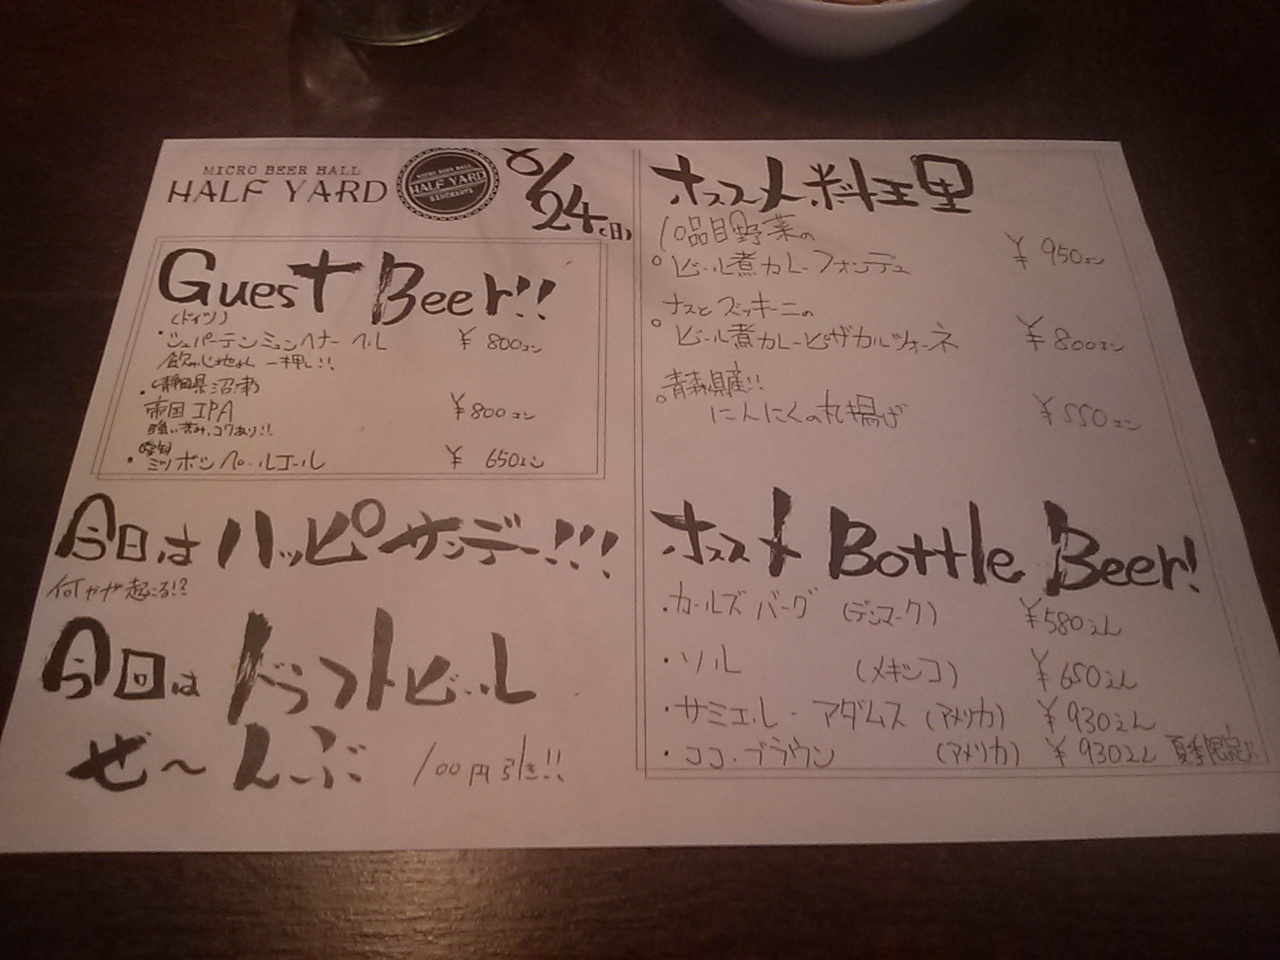 MICRO BEER HALL
HALF YARD
MICRO BEER HALL
HALF YARD
8/24(日)
Guest Beer!!
(ドイツ)
・シュパーテンミュンヘナーヘル ¥800エン
飲み心地よし 一押し!!
(静岡県沼津)
・帝国IPA ¥800エン
強い苦み、コクあり!!
(愛知)
・ミツボシペールエール ¥650エン
今日はハッピーサンデー!!!
何かが起こる!?
今日はドラフトビール
ぜ〜んぶ 100円引き!!
オススメ料理
10品目野菜の
○ビール煮カレーフォンデュ ¥950エン
ナスとズッキーニの
○ビール煮カレーピザカルツォーネ ¥800エン
青森県産!!
○にんにくの丸揚げ ¥550エン
オススメ Bottle Beer!
・カールズバーグ (デンマーク) ¥580えん
・ソル (メキシコ) ¥650えん
・サミエル・アダムス (アメリカ) ¥930えん
・ココ・ブラウン (アメリカ) ¥930えん 夏季限定!!